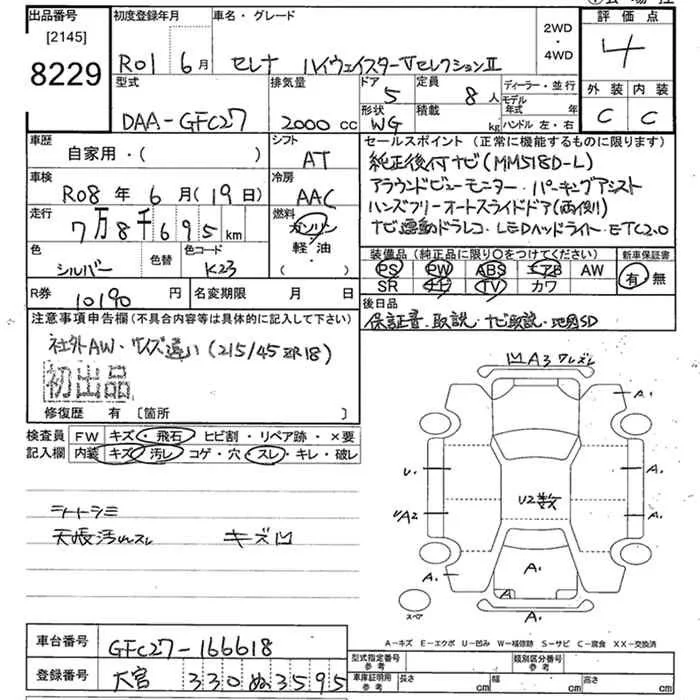 出品番号 初度登録年月 車名・グレード 2WD・4WD 評価点
[2145]
8229 R01 6月 セレナ ハイウェイスターVセレクションⅡ 4
型式 排気量 ドア 定員 ディーラー・並行 外装 内装
5 8人 モデル年式 年
DAA-GFC27 2000cc 形状 積載 ハンドル 左・右 C C
WG kg
車歴 シフト セールスポイント (正常に機能するものに限ります)
自家用・( ) AT 純正後付ナビ(MM518D-L)
車検 冷房 アラウンドビューモニター・パーキングアシスト
R08年 6月(19日) AAC ハンズフリーオートスライドドア(両側)
走行 燃料 ナビ連動ドラレコ・LEDヘッドライト・ETC2.0
7万8千695km ガソリン
色 色替 色コード 軽・油 装備品(純正品に限り○をつけてください) 新車保証書
シルバー K23 ( ) PS PW ABS エアB AW 有・無
SR ナビ TV カワ
R券 10190円 名変期限 月 日 後日品
注意事項申告欄(不具合内容等は具体的に記入して下さい) 保証書・取説・ナビ取説・地図SD
社外AW・サイズ違い(215/45ZR18)
初出品
修復歴 有 [箇所 ]
凹A3ワレズレ
A.
検査員 FW キズ・飛石 ヒビ割・リペア跡・×要
記入欄 内装 キズ・汚レ コゲ・穴・スレ・キレ・破レ
U. A.
U2数
UA2 A.
シートシミ
天張汚レスレ キズ凹
A. A. A.
スペア
A.
A-キズ E-エクボ U-凹み W-補修跡 S-サビ C-腐食 XX-交換済
車台番号 GFC27-166618
型式指定番号参考 類別区分番号参考
登録番号 大宮 330 ぬ 3595
車庫証明用参考 長さ cm 幅 cm 高さ cm